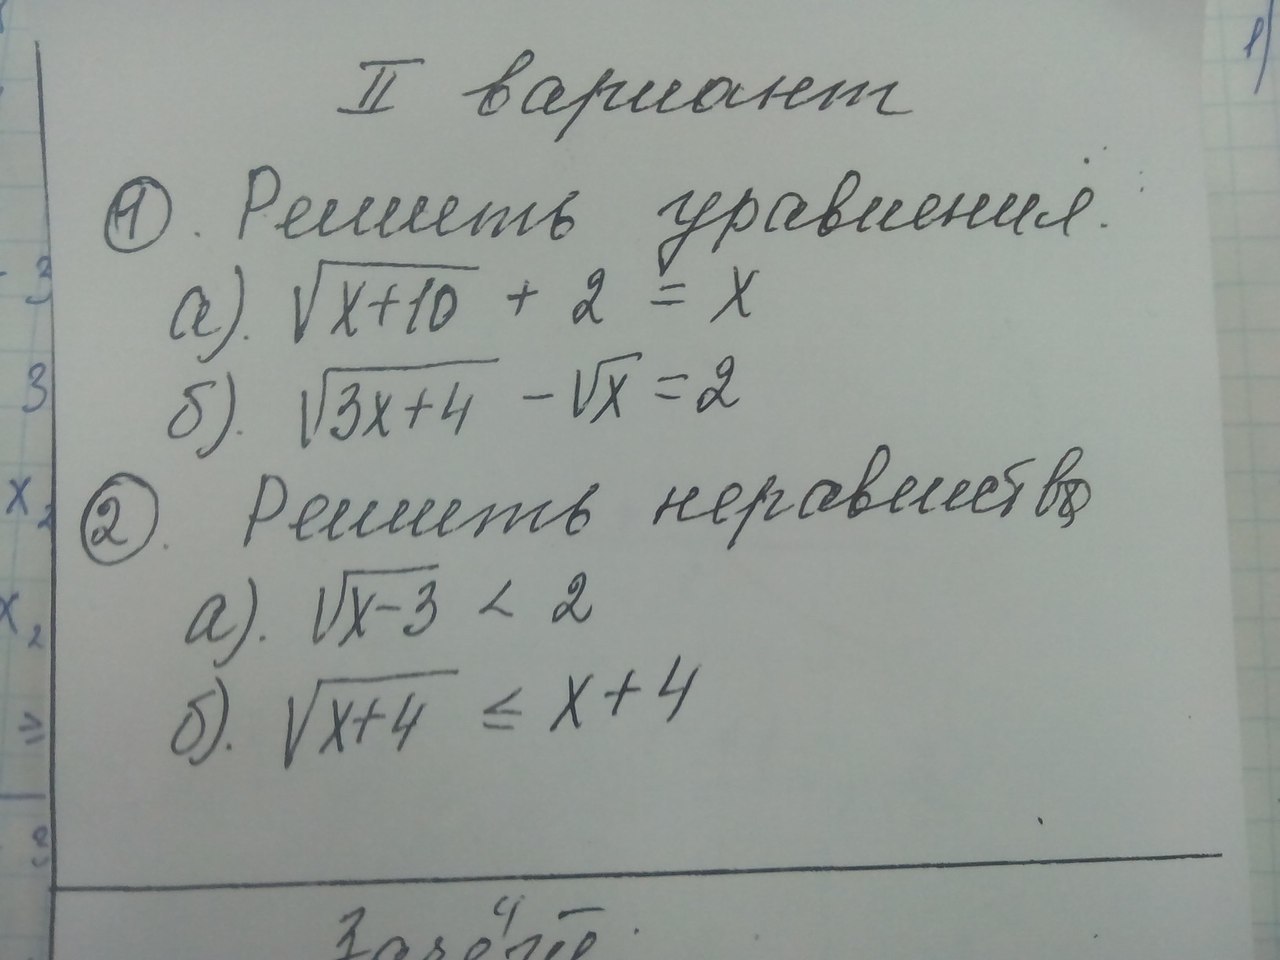 II вариант
1. Решить уравнения.
а). √x+10 + 2 = x
б). √3x+4 - √x = 2
2. Решить неравенства
а). √x-3 < 2
б). √x+4 ≤ x+4